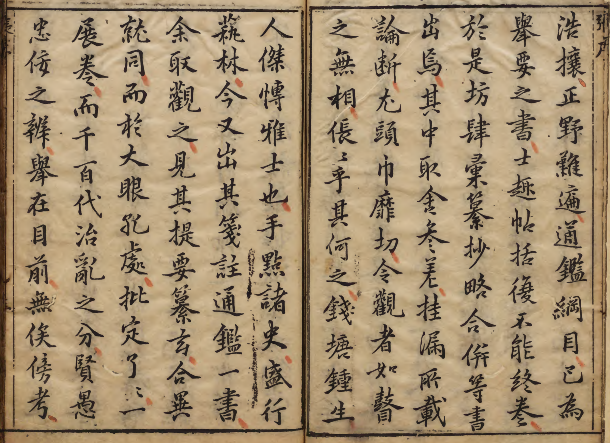 浩攘正野難遍通鑑綱目已為
舉要之書士趣帖括復不能終卷
於是坊肆彙纂抄略合併等書
出焉其中取舍叅差挂漏所載
論断尤頭巾靡切令觀者如瞽
之無相倀〻乎其何之錢塘鍾生
人傑慱雅士也手點諸史盛行
蓺林今又出其箋註通鑑一書
余取觀之見其提要纂玄合異
就同而於大眼孔處批定了〻一
展卷而千百代治亂之分賢愚
忠佞之辨舉在目前無俟傍考